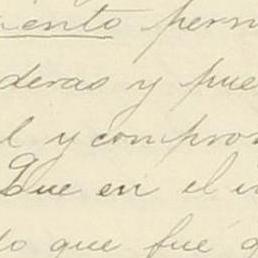 iento perm
deras y pue
l y compro
Que en el i
do que fué q